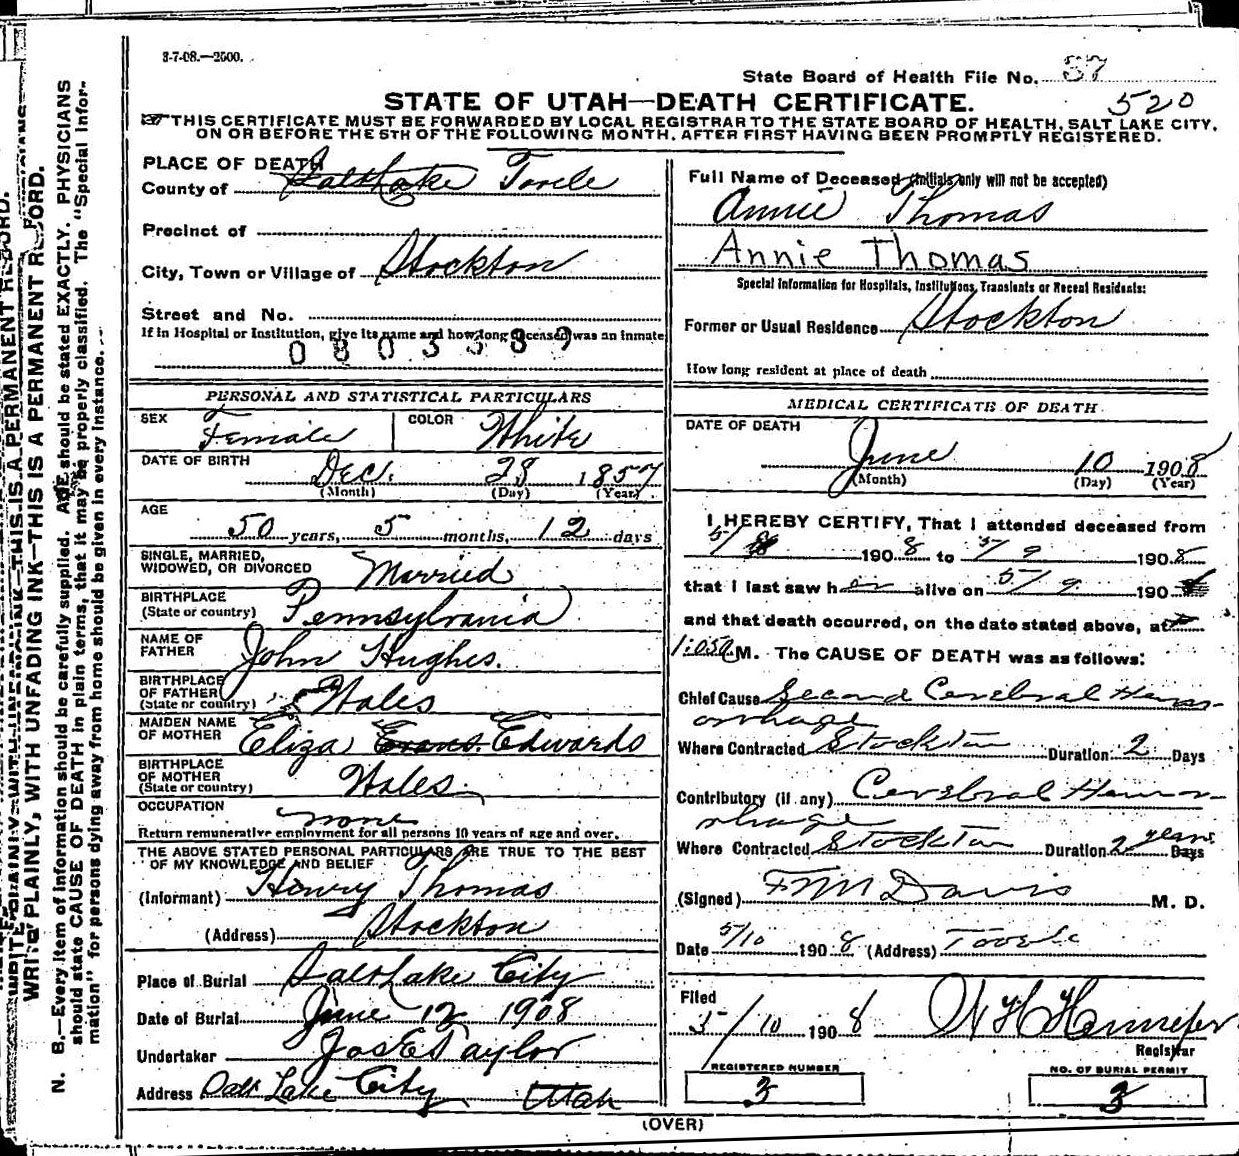 3-7-08.—2500.
State Board of Health File No. 37
520
STATE OF UTAH—DEATH CERTIFICATE.
THIS CERTIFICATE MUST BE FORWARDED BY LOCAL REGISTRAR TO THE STATE BOARD OF HEALTH, SALT LAKE CITY,
ON OR BEFORE THE 5TH OF THE FOLLOWING MONTH, AFTER FIRST HAVING BEEN PROMPTLY REGISTERED.
PLACE OF DEATH
County of Salt Lake Tooele
Precinct of
City, Town or Village of Stockton
Street and No.
If in Hospital or Institution, give its name and how long deceased was an inmate
0803389
Full Name of Deceased (Initials only will not be accepted)
Annie Thomas
Annie Thomas
Special Information for Hospitals, Institutions, Transients or Recent Residents:
Former or Usual Residence Stockton
How long resident at place of death
PERSONAL AND STATISTICAL PARTICULARS
SEX Female COLOR White
DATE OF BIRTH Dec. 28 1857
(Month) (Day) (Year)
AGE 50 years, 5 months, 12 days
SINGLE, MARRIED,
WIDOWED, OR DIVORCED Married
BIRTHPLACE
(State or country) Pennsylvania
NAME OF
FATHER John Hughes.
BIRTHPLACE
OF FATHER
(State or country) Wales
MAIDEN NAME
OF MOTHER Eliza Evans Edwards
BIRTHPLACE
OF MOTHER
(State or country) Wales.
OCCUPATION none
Return remunerative employment for all persons 10 years of age and over.
THE ABOVE STATED PERSONAL PARTICULARS ARE TRUE TO THE BEST
OF MY KNOWLEDGE AND BELIEF
(Informant) Henry Thomas
(Address) Stockton
Place of Burial Salt Lake City
Date of Burial June 12 1908
Undertaker Jos E Taylor
Address Salt Lake City Utah
MEDICAL CERTIFICATE OF DEATH
DATE OF DEATH
June 10 1908
(Month) (Day) (Year)
I HEREBY CERTIFY, That I attended deceased from
5/ 1908 to 5/9 1908
that I last saw her alive on 5/9 190
and that death occurred, on the date stated above, at
1:05 M. The CAUSE OF DEATH was as follows:
Chief Cause Second Cerebral Hem-
orrhage
Where Contracted Stockton Duration 2 Days
Contributory (if any) Cerebral Hem-
orrhage
Where Contracted Stockton Duration 2 years Days
(Signed) F M Davis M. D.
Date 5/10 1908 (Address) Tooele
Filed
5/10 1908
Registrar
REGISTERED NUMBER
3
NO. OF BURIAL PERMIT
3
(OVER)
WRITE PLAINLY, WITH UNFADING INK—THIS IS A PERMANENT RECORD.
N. B.—Every item of information should be carefully supplied. AGE should be stated EXACTLY. PHYSICIANS
should state CAUSE OF DEATH in plain terms, that it may be properly classified. The "Special Infor-
mation" for persons dying away from home should be given in every instance.